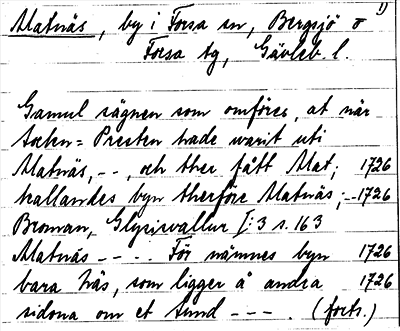 1)
Matnäs, by i Forsa sn, Bergsjö o
Forsa tg, Gävleb. l.
Gamul sägnen som omföres, at när
sockn=Presten hade warit uti
Matnäs, - -, och ther fått Mat; 1726
kallandes byn therföre Matnäs; -- 1726
Broman, Glysisvallur I:3 s. 163
Matnäs - - - - För nämnes byn 1726
bara Näs, som ligger å andra 1726
sidona om et sund - - - . (forts.)